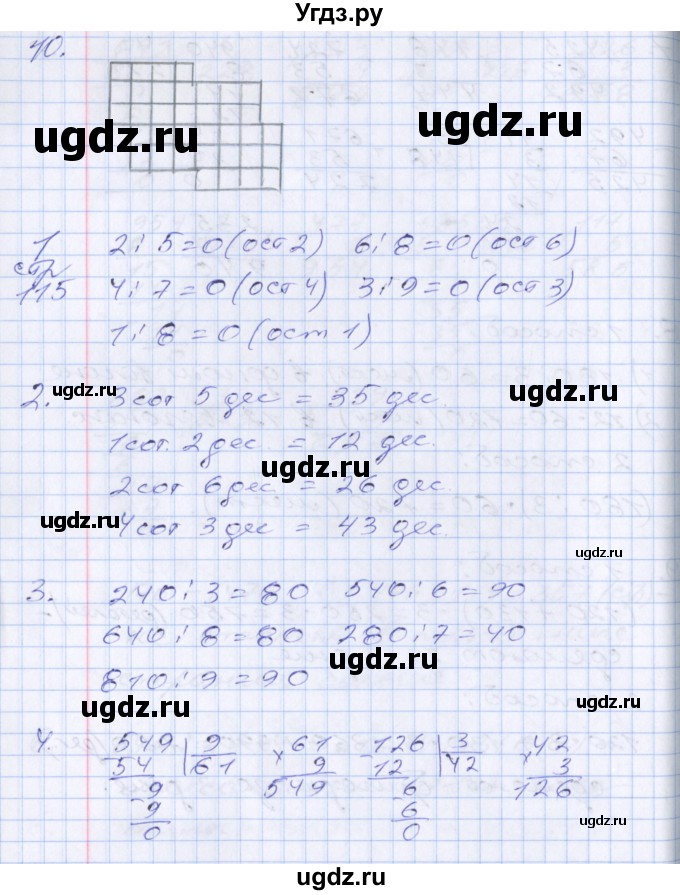 Угдз.ру
10.
ugdz.ru
ugdz.ru
1 2 : 5 = 0 (ост 2) 6 : 8 = 0 (ост 6)
стр
115 4 : 7 = 0 (ост 4) 3 : 9 = 0 (ост 3)
1 : 8 = 0 (ост 1)
ugdz.ru
ugdz.ru
2. 3 сот 5 дес = 35 дес.
1 сот. 2 дес. = 12 дес.
ugdz.ru
2 сот 6 дес = 26 дес.
ugdz.ru
4 сот 3 дес = 43 дес.
ugdz.ru
3. 240 : 3 = 80 540 : 6 = 90
640 : 8 = 80 280 : 7 = 40
ugdz.ru
810 : 9 = 90
ugdz.ru
ugdz.ru
4. - 549 | 9 × 61 - 126 | 3 × 42
54 61 9 12 42 3
- 9 549 - 6 126
9 6
0 0
ugdz.ru
Угдз.ру